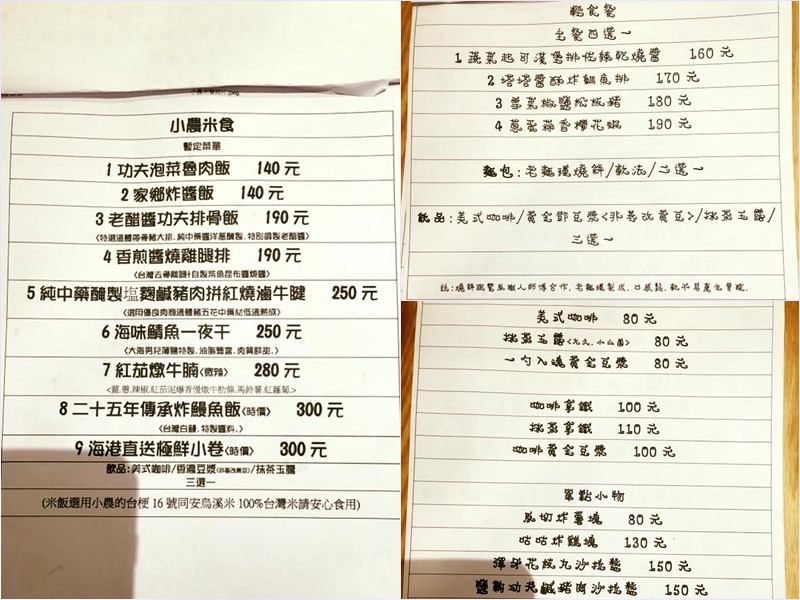 小農米食
暫定菜單
1 功夫泡菜魯肉飯 140 元
2 家鄉炸醬飯 140 元
3 老醋醬功夫排骨飯 190 元
<特選溫體帶骨豬大排.純中藥洋蔥醃製.特別調製老醋醬>
4 香煎醬燒雞腿排 190 元
<台灣去骨雞腿+自製柴魚昆布醬燒醬>
5 純中藥醃製塩麴鹹豬肉拼紅燒滷牛腱 250 元
<選用優良肉商溫體豬五花中藥材低溫熟成>
6 海味鯖魚一夜干 250 元
<大海男兒薄鹽特製.油脂豐富.肉質鮮甜.>
7 紅茄燉牛腩<微辣> 280 元
<薑.蔥.辣椒.紅茄泥爆香慢燉牛肋條.馬鈴薯.紅蘿蔔.>
8 二十五年傳承炸鰻魚飯<時價> 300 元
<台灣白鰻.特製醬料.>
9 海港直送極鮮小卷<時價> 300 元
飲品:美式咖啡/香濃豆漿<非基改黃豆>/抹茶玉露
三選一
(米飯選用小農的台梗 16 號同安烏溪米 100%台灣米請安心食用)
輕食餐
主餐四選一
1 蔬菜起司漢堡排佐辣乾燒醬 160 元
2 塔塔醬酥炸鯛魚排 170 元
3 雪菜椒鹽松板豬 180 元
4 蔥蛋蒜香櫻花蝦 190 元
麵包:老麵現燒餅/軟法/二選一
飲品:美式咖啡/黃金部豆漿<非基改黃豆>/抹茶玉露/
三選一
美式咖啡 80 元
抹茶玉露 80 元
一勺入魂黃金豆漿 80 元
咖啡拿鐵 100 元
抹茶拿鐵 110 元
咖啡黃金豆漿 100 元
單點小物
風切炸薯塊 80 元
咕咕炸雞塊 130 元
澤牙花枝丸沙拉盤 150 元
鹽麴功夫鹹豬肉沙拉盤 150 元